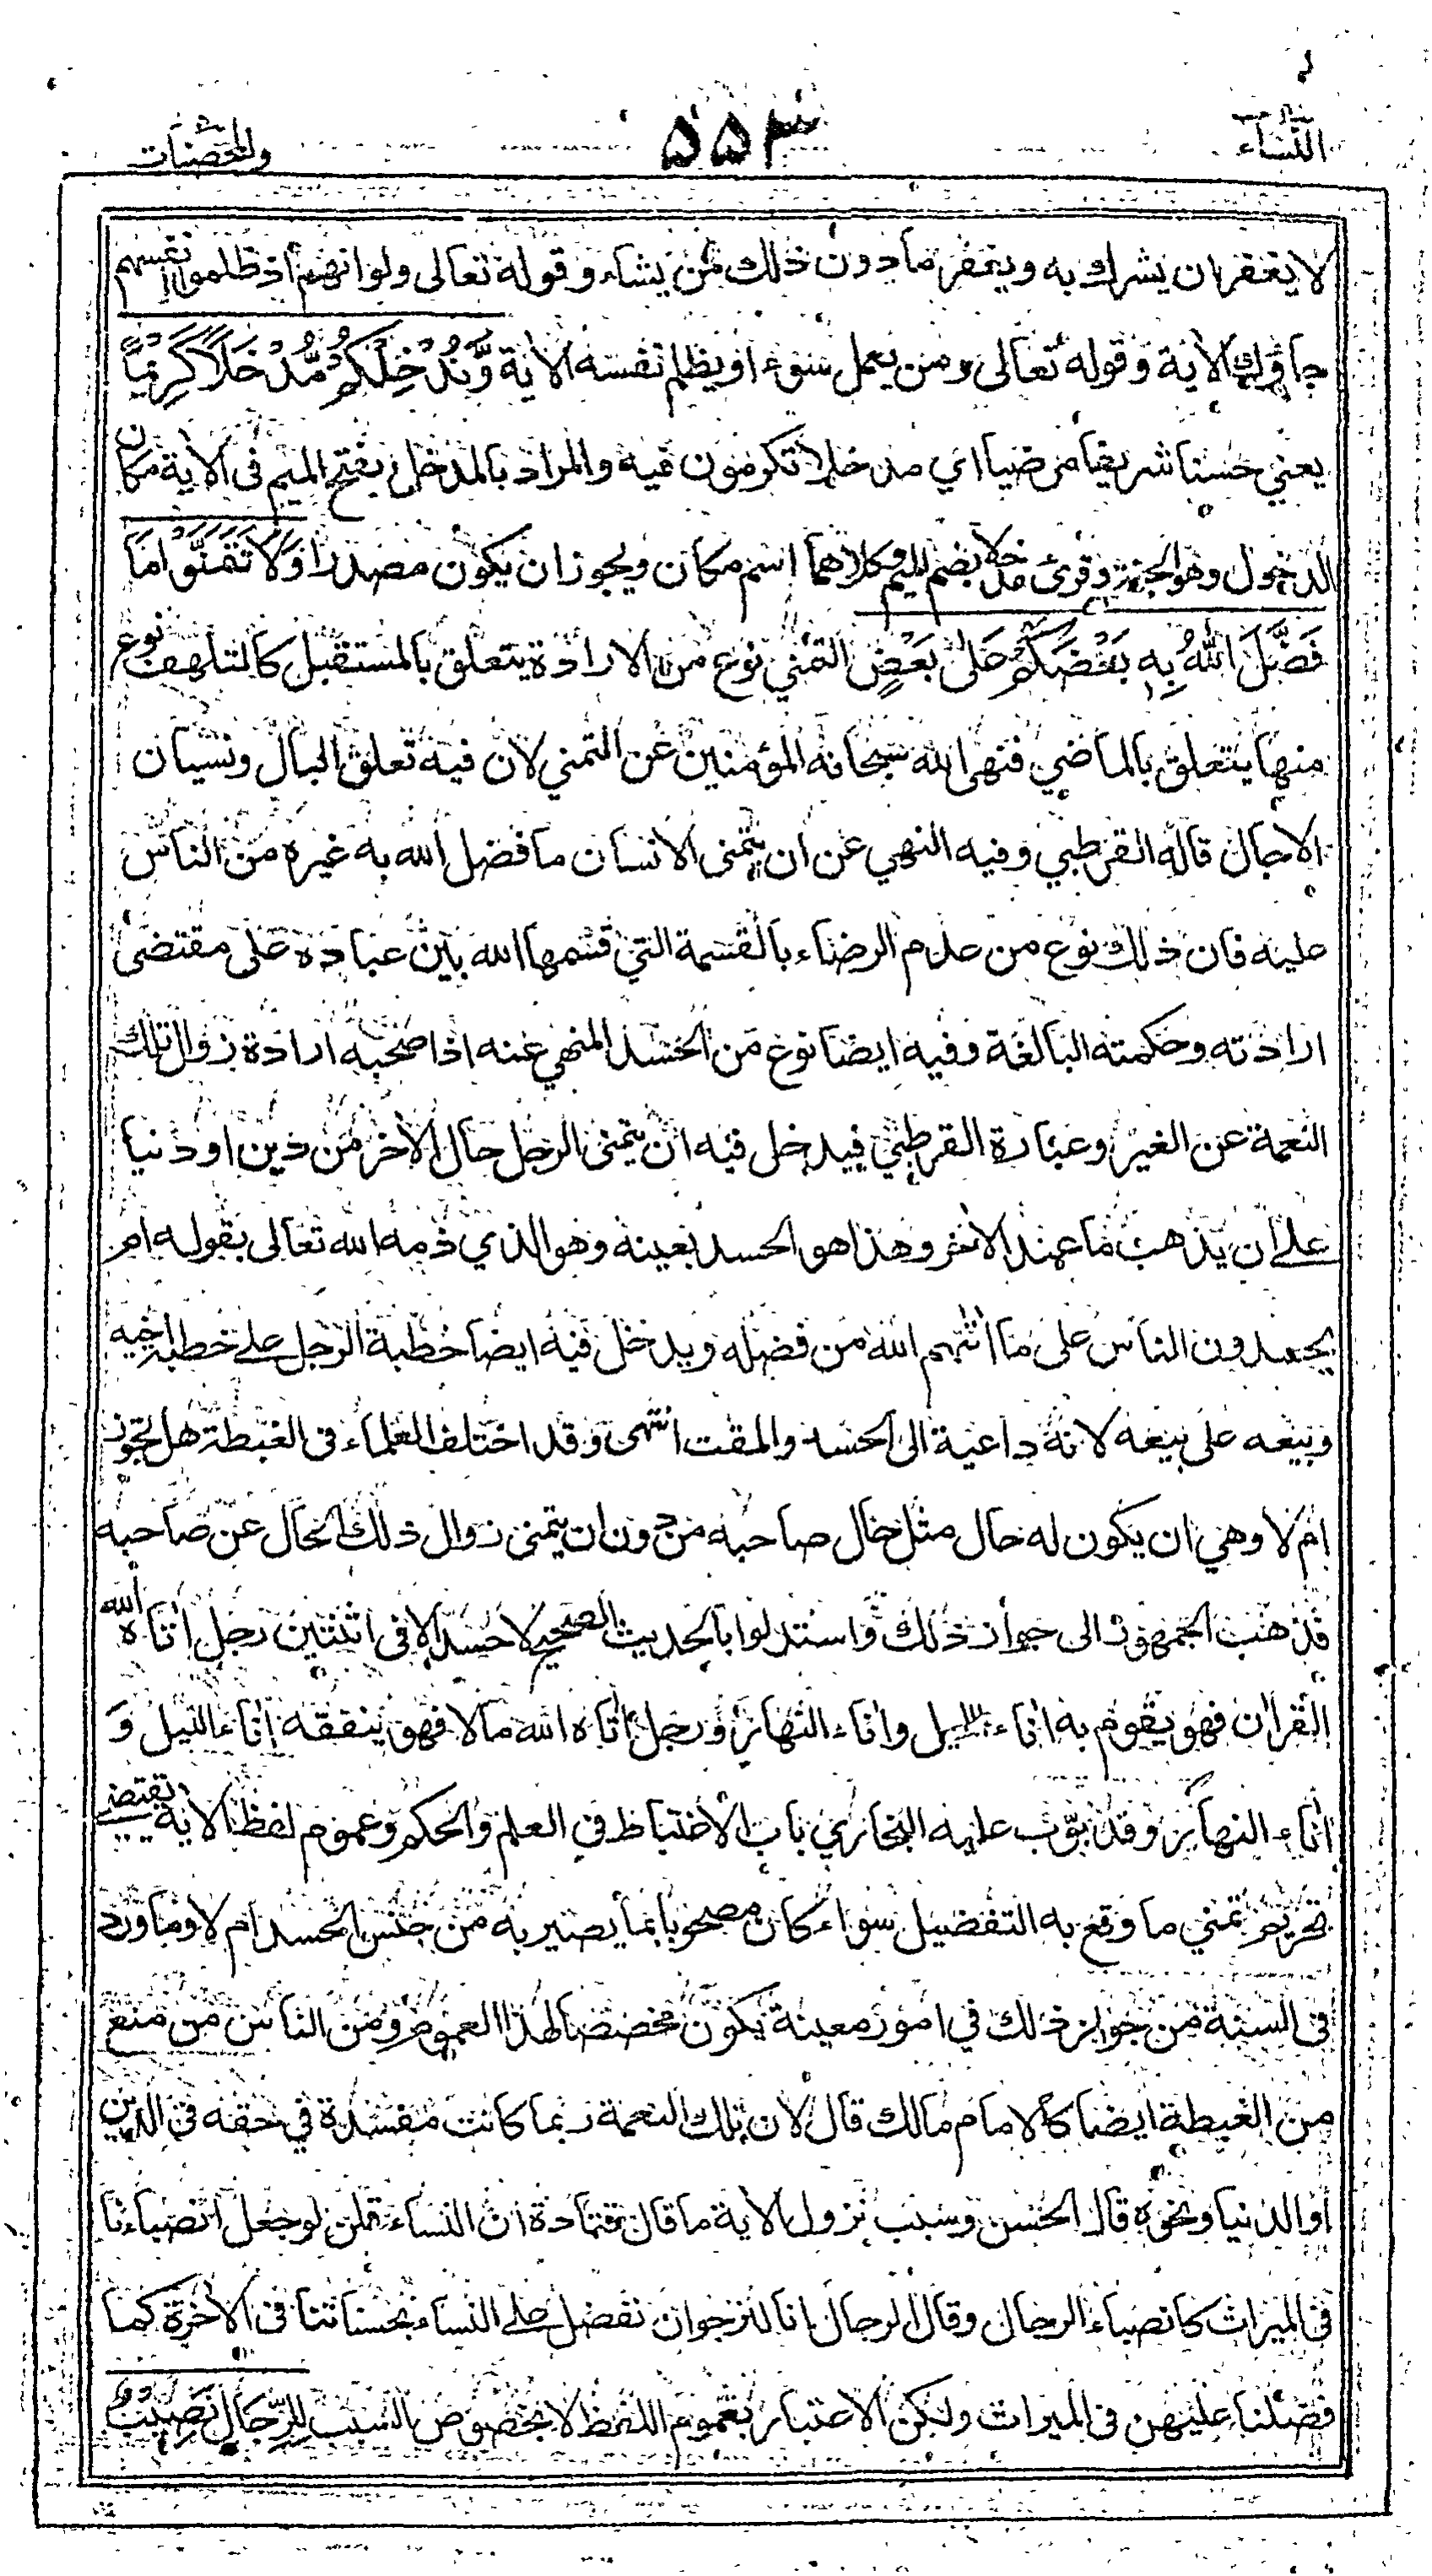 النساء
۵۵۳
والمحصنات
لا يغفر ان يشرك به ويغفر ما دون ذلك لمن يشاء وقوله تعالى ولو انهم اذ ظلموا انفسهم
جاؤك الاية وقوله تعالى ومن يعمل سوء او يظلم نفسه الاية وَّنُدْخِلْكُمْ مُّدْخَلًا كَرِيْمًا
يعني حسنا شريفا مرضيا اي مدخلا تكرمون فيه والمراد بالمدخل بفتح الميم فى الاية مكان
الدخول وهو الجنة وقرئ مدخلا بضم الميم وكلاهما اسم مكان ويجوز ان يكون مصدرا وَلَا تَتَمَنَّوْا مَا
فَضَّلَ اللهُ بِهٖ بَعْضَكُمْ عَلٰى بَعْضٍ التمني نوع من الارادة يتعلق بالمستقبل كالتلهف نوع
منها يتعلق بالماضي فنهى الله سبحانه المؤمنين عن التمني لان فيه تعلق البال ونسيان
الاجال قاله القرطبي وفيه النهي عن ان يتمنى الانسان ما فضل الله به غيره من الناس
عليه فان ذلك نوع من عدم الرضاء بالقسمة التي قسمها الله بين عباده على مقتضى
ارادته وحكمته البالغة وفيه ايضا نوع من الحسد المنهي عنه اذا صحبه ارادة زوال تلك
النعمة عن الغير وعبارة القرطبي فيدخل فيه ان يتمنى الرجل حال الاخر من دين او دنيا
على ان يذهب ما عند الاخر وهذا هو الحسد بعينه وهو الذي ذمه الله تعالى بقوله ام
يحسدون الناس على ما اتٰهم الله من فضله ويدخل فيه ايضا خطبة الرجل على خطبة اخيه
وبيعه على بيعه لانه داعية الى الحسد والمقت انتهى وقد اختلف العلماء فى الغبطة هل تجوز
ام لا وهي ان يكون له حال مثل حال صاحبه من دون ان يتمنى زوال ذلك الحال عن صاحبه
فذهب الجمهور الى جواز ذلك واستدلوا بالحديث الصحيح لا حسد الا فى اثنتين رجل اتاه الله
القران فهو يقوم به اناء الليل واناء النهار ورجل اتاه الله مالا فهو ينفقه اناء الليل و
اناء النهار وقد بوّب عليه البخاري باب الاغتباط في العلم والحكم وعموم لفظ الاية يقتضي
تحريم تمني ما وقع به التفضيل سواء كان مصحوبا بما يصير به من جنس الحسد ام لا وما ورد
فى السنة من جواز ذلك في امور معينة يكون مخصصا لهذا العموم ومن الناس من منع
من الغبطة ايضا كالامام مالك قال لان تلك النعمة ربما كانت مفسدة في حقه فى الدين
او الدنيا ونحوه قال الحسن وسبب نزول الاية ما قال قتادة ان النساء قلن لو جعل انصباءنا
فى الميراث كانصباء الرجال وقال الرجال انا لنرجوان نفضل على النساء بحسناتنا فى الاخرة كما
فضلنا عليهن فى الميراث ولكن الاعتبار بعموم اللفظ لا بخصوص السبب لِلرِّجَالِ نَصِيْبٌ